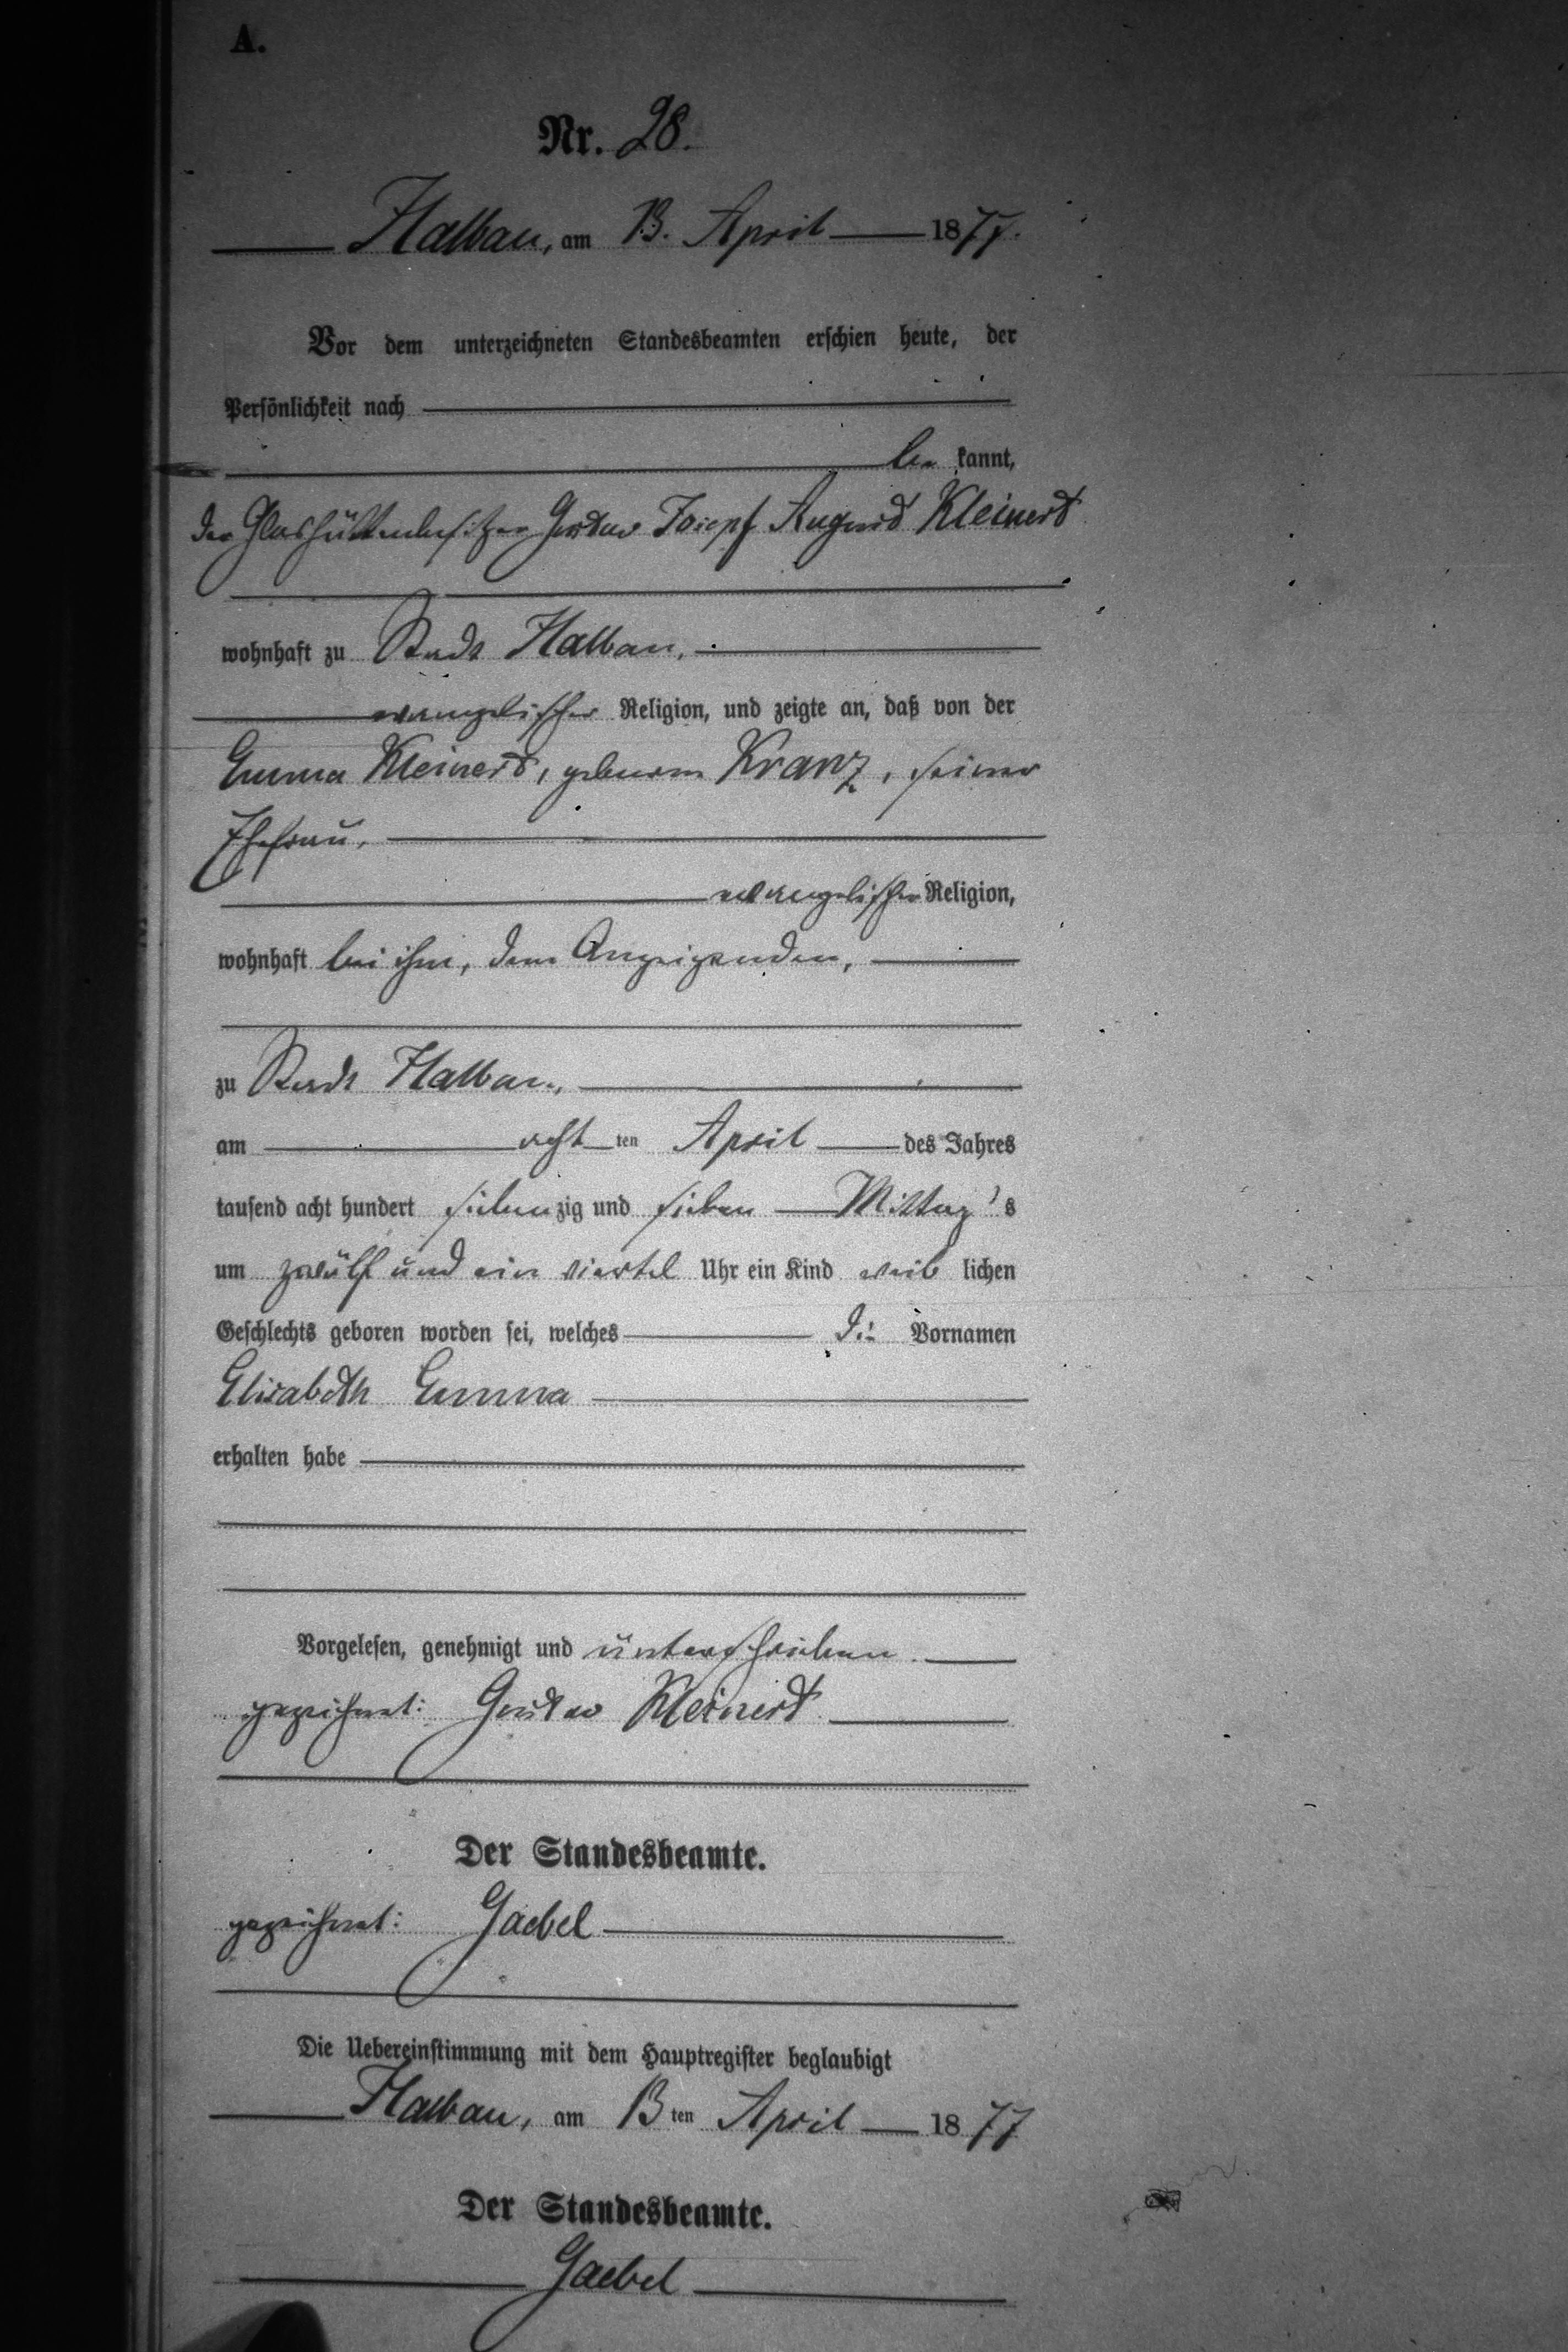 A.
Nr. 28.
Halbau, am 13. April 1877.
Vor dem unterzeichneten Standesbeamten erschien heute, der
Persönlichkeit nach
be kannt,
der Glashüttenbesitzer Gustav Josepf August Kleinert
wohnhaft zu Stadt Halbau,
evangelischer Religion, und zeigte an, daß von der
Emma Kleinert, geborene Kranz, seiner
Ehefrau,
evangelischer Religion,
wohnhaft bei ihm, dem Anzeigenden,
zu Stadt Halbau,
am acht ten April des Jahres
tausend acht hundert siebenzig und sieben Mittag's
um zwölf und ein viertel Uhr ein Kind weib lichen
Geschlechts geboren worden sei, welches die Vornamen
Elisabeth Emma
erhalten habe
Vorgelesen, genehmigt und unterschrieben.
gezeichnet: Gustav Kleinert
Der Standesbeamte.
gezeichnet: Gaebel
Die Uebereinstimmung mit dem Hauptregister beglaubigt
Halbau, am 13 ten April 1877
Der Standesbeamte.
Gaebel